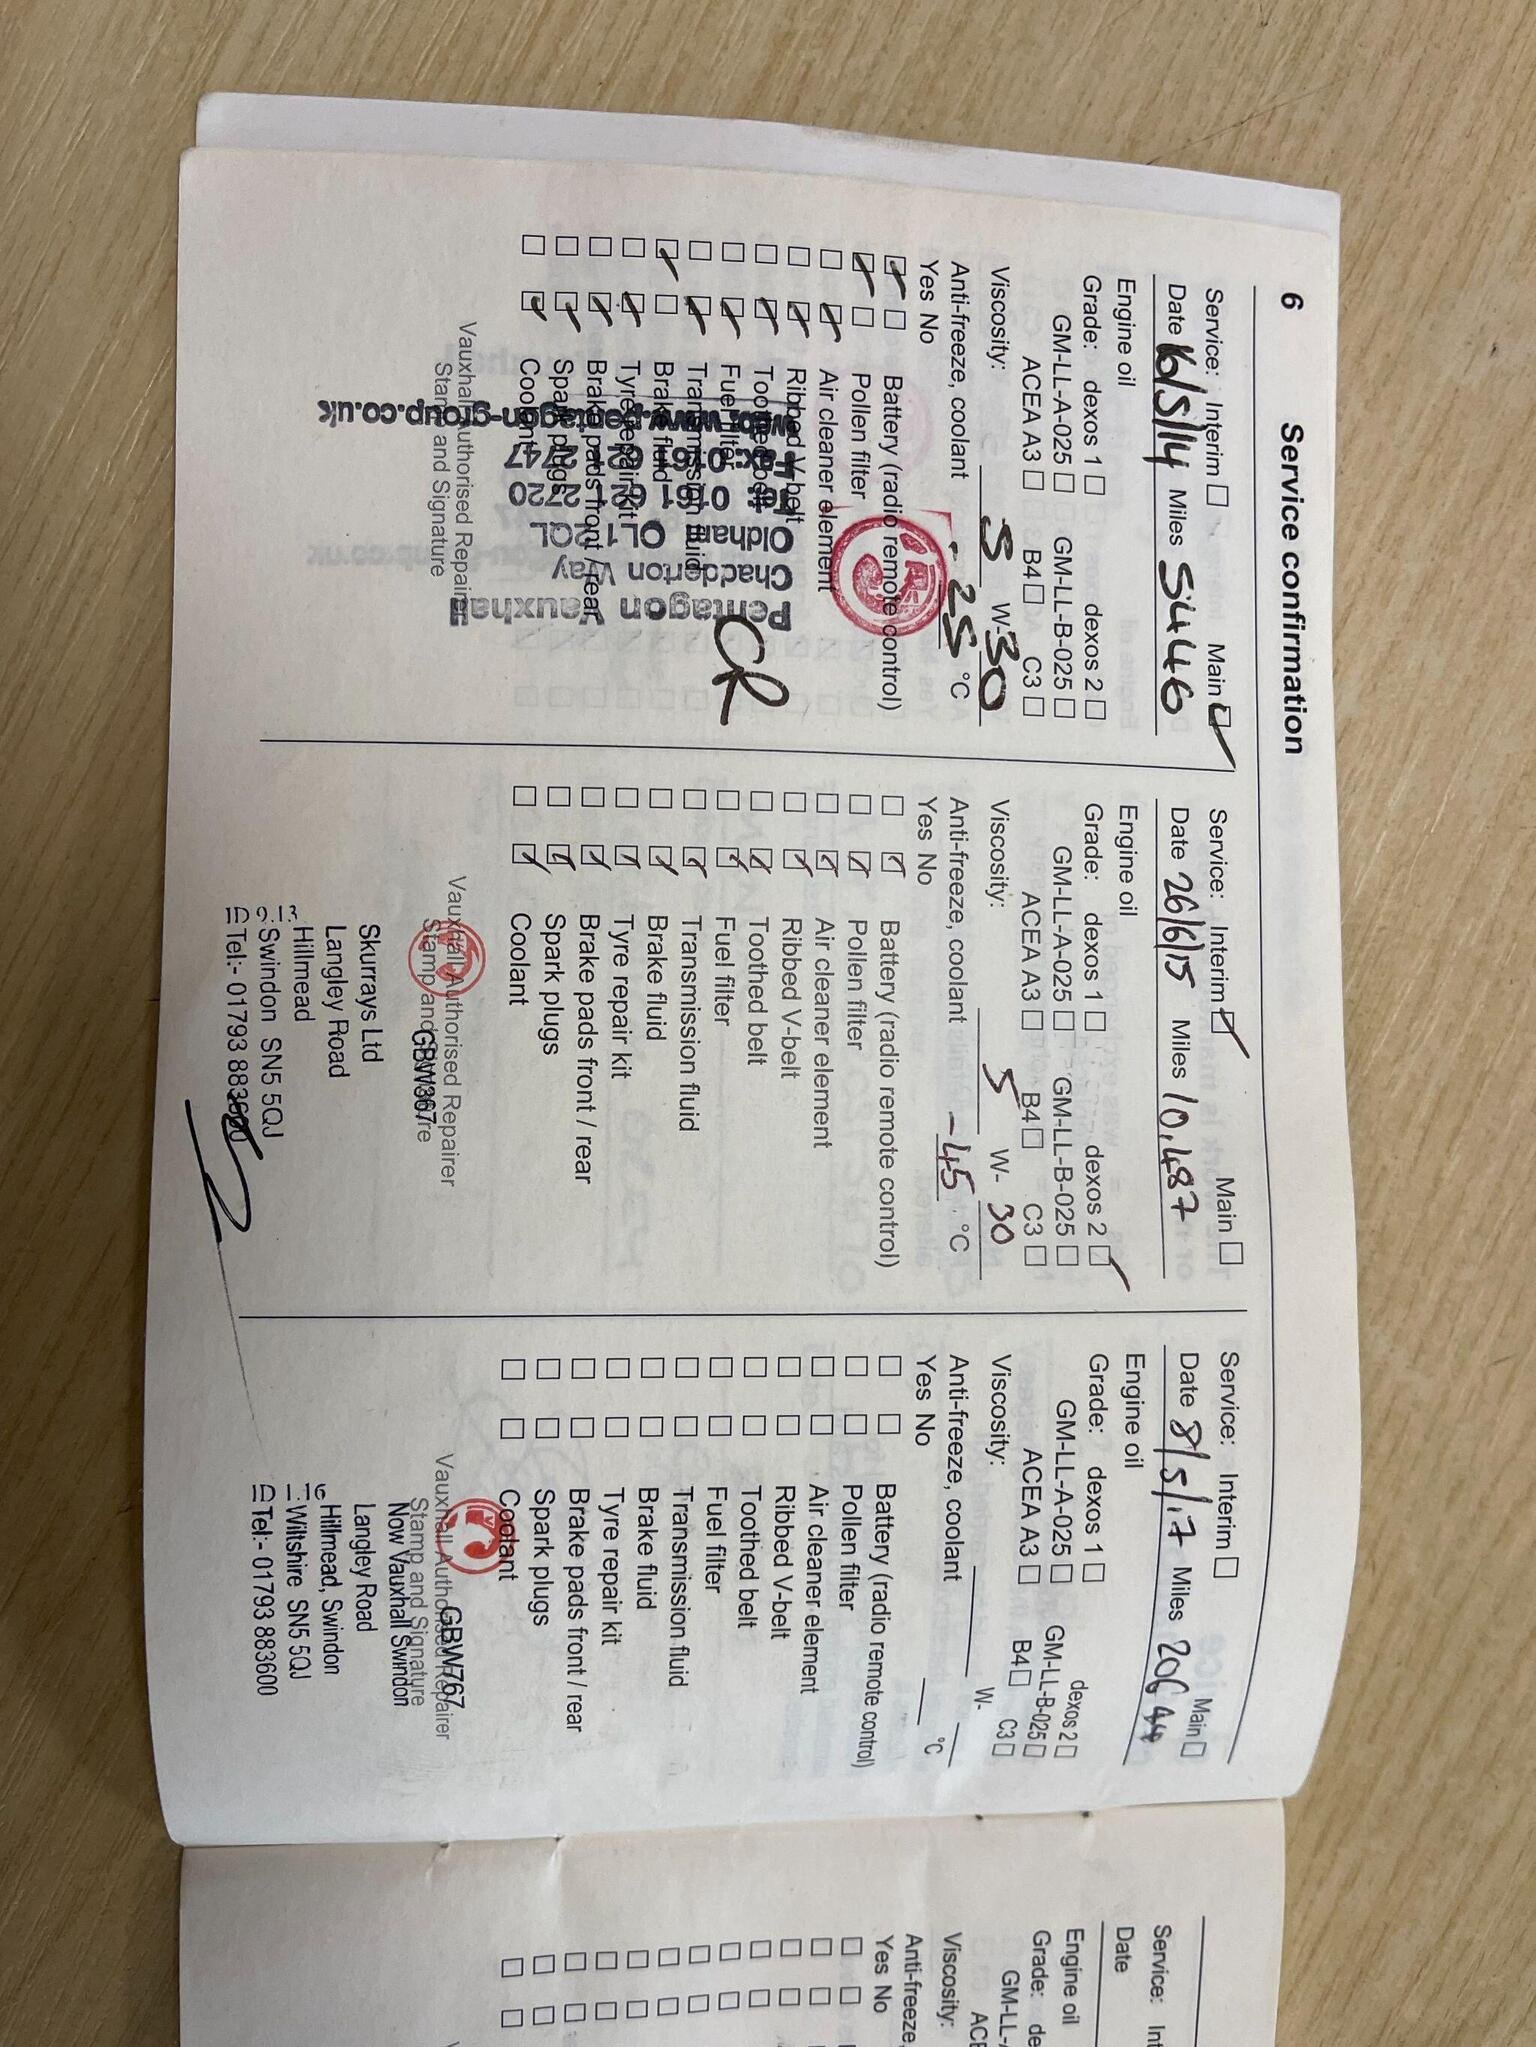 6 Service confirmation
Service: Interim Main
Date 16/5/14 Miles 5446
Engine oil
Grade: dexos 1 dexos 2
GM-LL-A-025 GM-LL-B-025
ACEA A3 B4 C3
Viscosity: 5 W-30
Anti-freeze, coolant -25 °C
Yes No
Battery (radio remote control)
Pollen filter
Air cleaner element
Ribbed V-belt
Toothed belt
Fuel filter
Transmission fluid
Brake fluid
Tyre repair kit
Brake pads front / rear
Spark plugs
Coolant
Vauxhall Authorised Repairer
Stamp and Signature
CR
Pentagon Vauxhall
Chadderton Way
Oldham OL1 2QL
Tel: 0161 621 2720
Fax: 0161 621 2747
www.pentagon-group.co.uk
Service: Interim Main
Date 26/6/15 Miles 10,487
Engine oil
Grade: dexos 1 dexos 2
GM-LL-A-025 GM-LL-B-025
ACEA A3 B4 C3
Viscosity: 5 W-30
Anti-freeze, coolant -45 °C
Yes No
Battery (radio remote control)
Pollen filter
Air cleaner element
Ribbed V-belt
Toothed belt
Fuel filter
Transmission fluid
Brake fluid
Tyre repair kit
Brake pads front / rear
Spark plugs
Coolant
Vauxhall Authorised Repairer
Stamp and Signature
GBW367
Skurrays Ltd
Langley Road
Hillmead
Swindon SN5 5QJ
Tel:- 01793 883600
Service: Interim Main
Date 8/5/17 Miles 20644
Engine oil
Grade: dexos 1 dexos 2
GM-LL-A-025 GM-LL-B-025
ACEA A3 B4 C3
Viscosity: W-
Anti-freeze, coolant °C
Yes No
Battery (radio remote control)
Pollen filter
Air cleaner element
Ribbed V-belt
Toothed belt
Fuel filter
Transmission fluid
Brake fluid
Tyre repair kit
Brake pads front / rear
Spark plugs
Coolant
Vauxhall Authorised Repairer
Stamp and Signature
GBW767
Now Vauxhall Swindon
Langley Road
Hillmead, Swindon
Wiltshire SN5 5QJ
Tel:- 01793 883600
Service: Int
Date
Engine oil
Grade: de
GM-LL-
ACE
Viscosity:
Anti-freeze,
Yes No